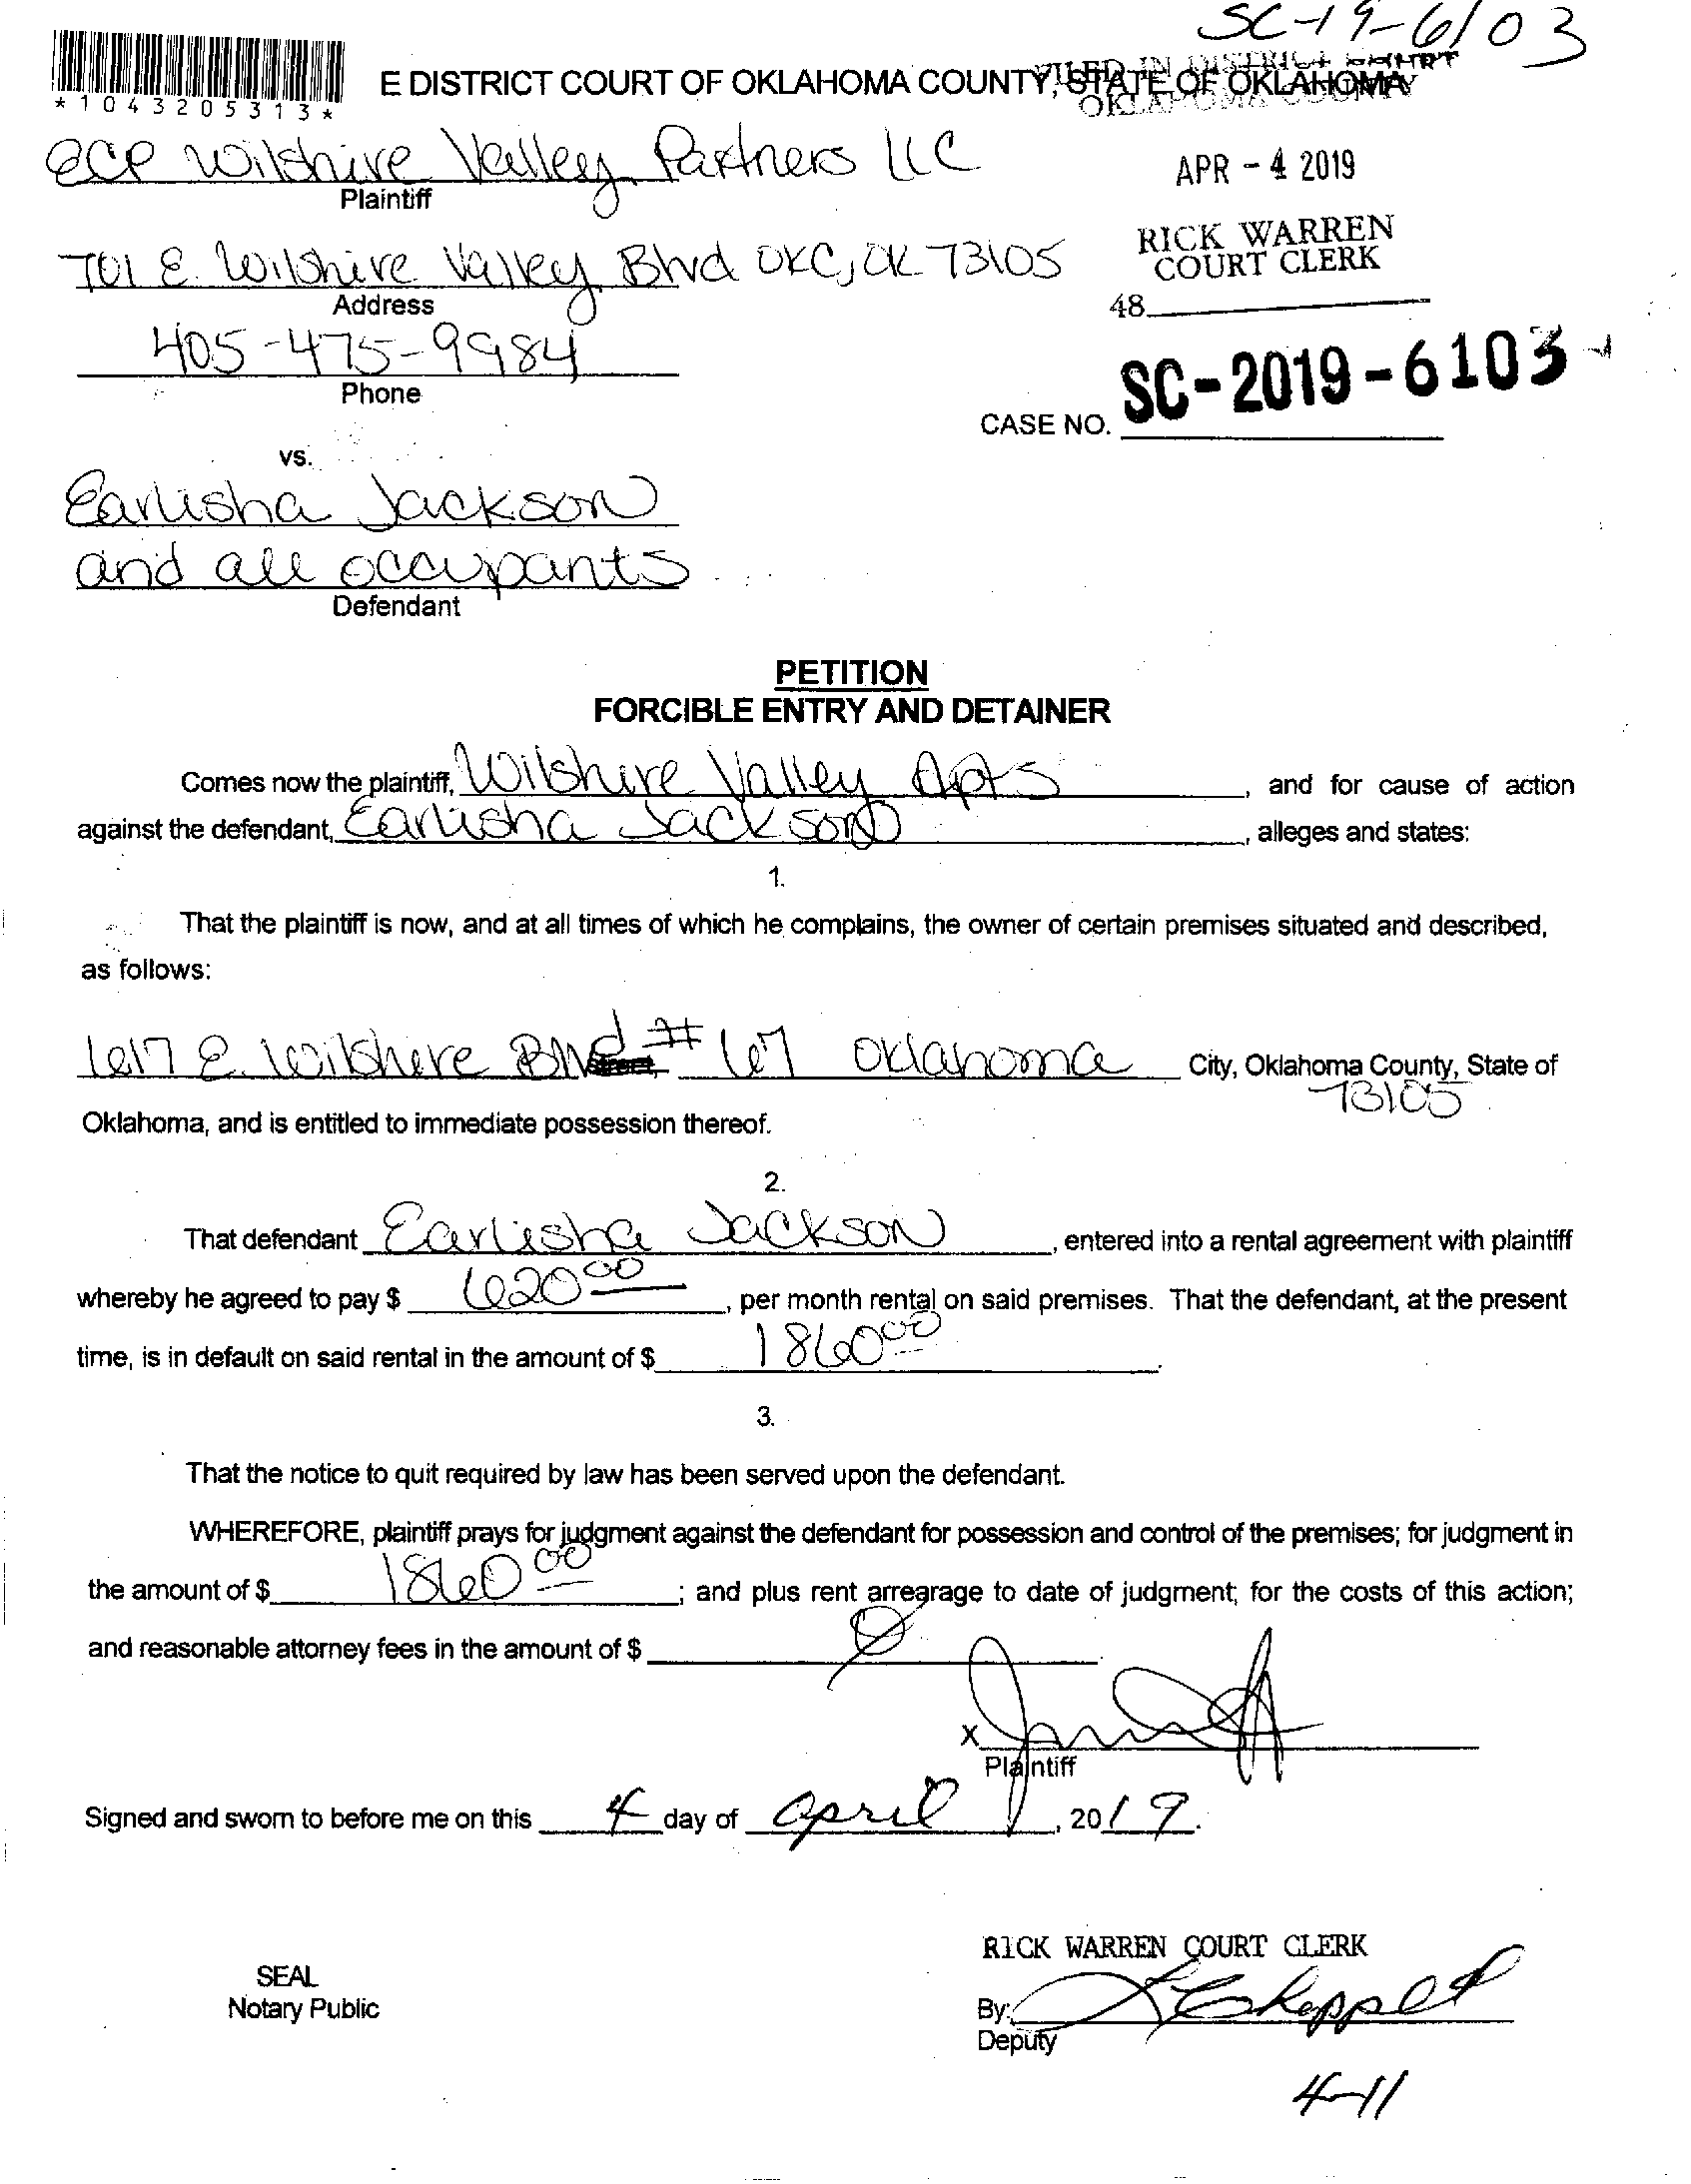 SC-19-6103
*1043205313*
E DISTRICT COURT OF OKLAHOMA COUNTY, STATE OF OKLAHOMA
FILED IN DISTRICT COURT
OKLAHOMA COUNTY
ECP Wilshire Valley Partners LLC
Plaintiff
APR - 4 2019
701 E. Wilshire Valley Blvd OKC, OK 73105
Address
RICK WARREN
COURT CLERK
48
405-475-9984
Phone
CASE NO. SC-2019-6103
vs.
Earlisha Jackson
and all occupants
Defendant
PETITION
FORCIBLE ENTRY AND DETAINER
Comes now the plaintiff, Wilshire Valley Apts, and for cause of action
against the defendant, Earlisha Jackson, alleges and states:
1.
That the plaintiff is now, and at all times of which he complains, the owner of certain premises situated and described,
as follows:
617 E. Wilshire Blvd # 67 Oklahoma City, Oklahoma County, State of
73105
Oklahoma, and is entitled to immediate possession thereof.
2.
That defendant Earlisha Jackson, entered into a rental agreement with plaintiff
whereby he agreed to pay $ 620.00, per month rental on said premises. That the defendant, at the present
time, is in default on said rental in the amount of $ 1860.00.
3.
That the notice to quit required by law has been served upon the defendant.
WHEREFORE, plaintiff prays for judgment against the defendant for possession and control of the premises; for judgment in
the amount of $ 1860.00; and plus rent arrearage to date of judgment; for the costs of this action;
and reasonable attorney fees in the amount of $ Ø.
X
Plaintiff
Signed and sworn to before me on this 4 day of April, 2019.
RICK WARREN COURT CLERK
SEAL
Notary Public
By:
Deputy
4-11